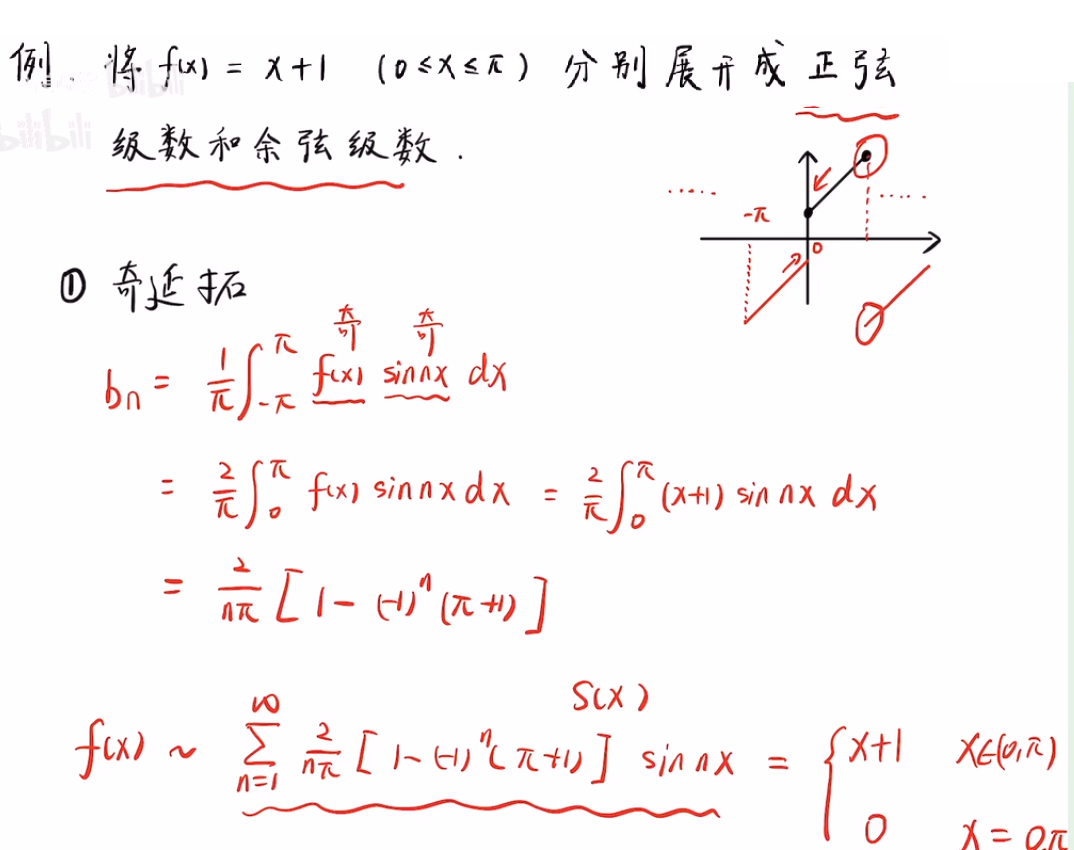 例. 将 f(x) = x+1 (0≤x≤π) 分别展开成正弦
级数和余弦级数.
bilibili
bilibili
-π
0
① 奇延拓
奇 奇
bn = 1/π ∫_{-π}^{π} f(x) sin nx dx
= 2/π ∫_0^π f(x) sin nx dx = 2/π ∫_0^π (x+1) sin nx dx
= 2/(nπ) [1-(-1)^n (π+1)]
S(x)
f(x) ~ ∑_{n=1}^{∞} 2/(nπ) [1-(-1)^n (π+1)] sin nx = { x+1 x∈(0,π)
0 x=0,π